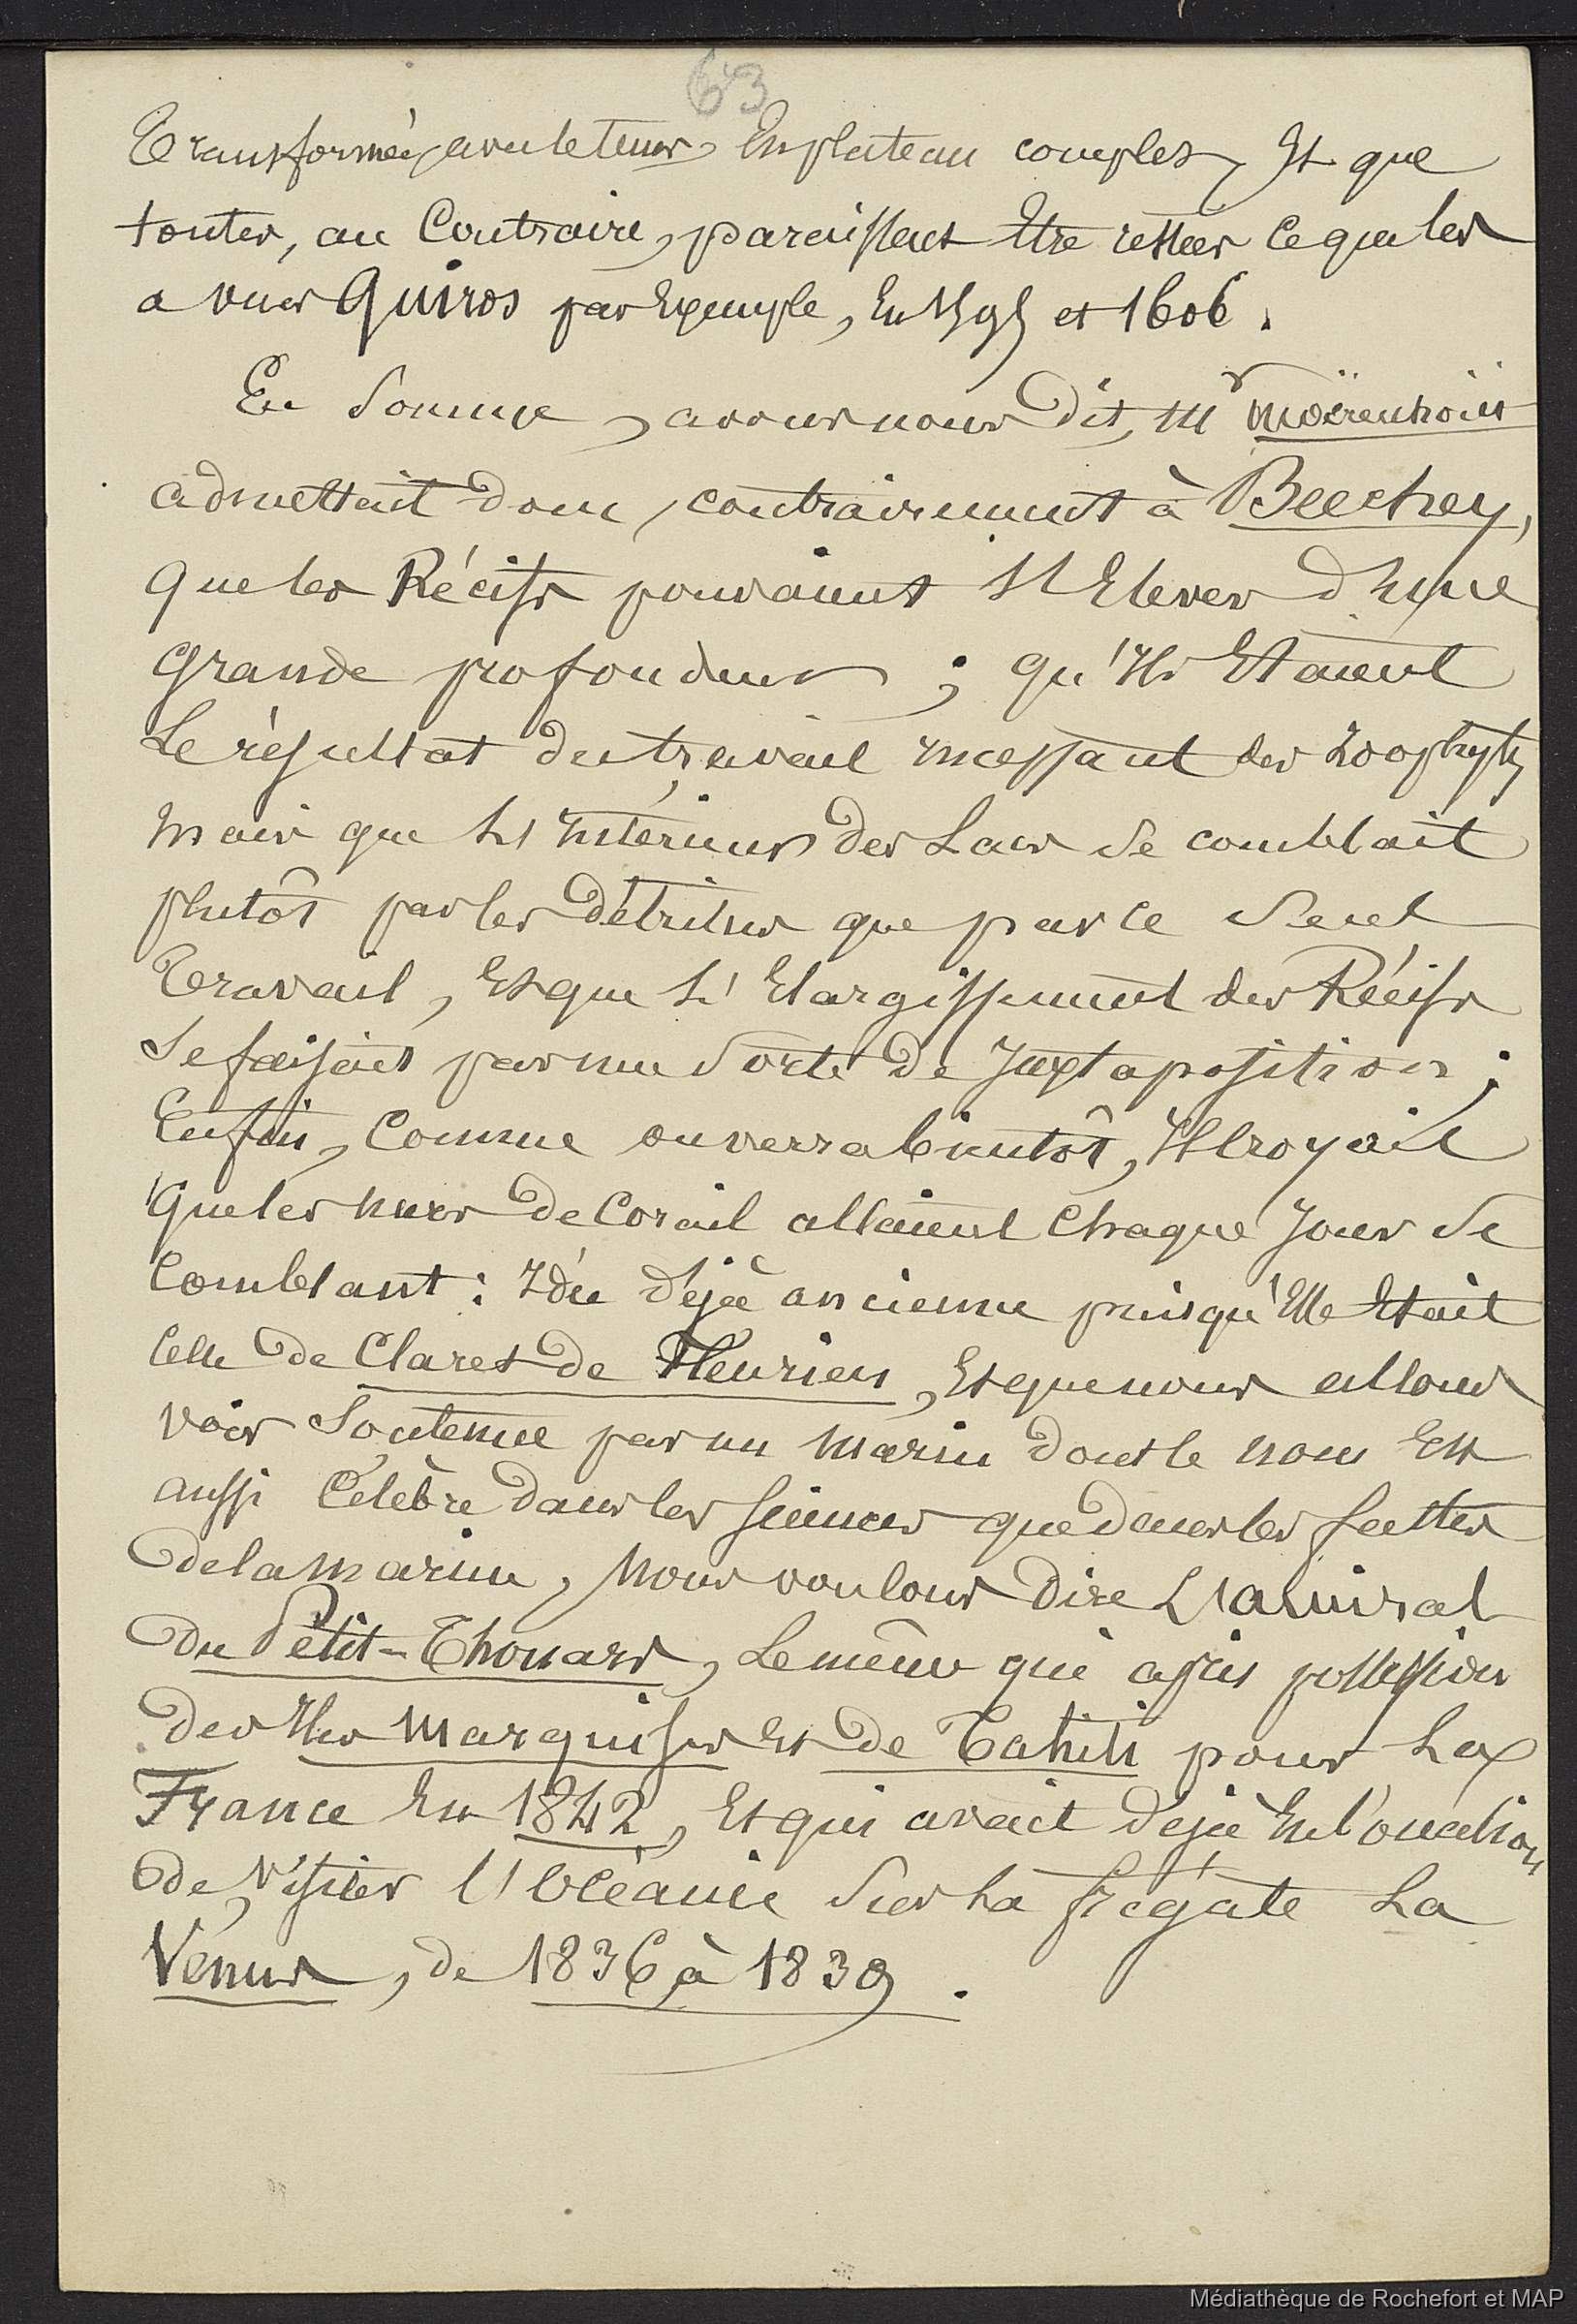 63
transformées avec le temps en plateau complet, et que
toutes, au contraire, paraissent être restées ce que les
a vues Quiros par exemple, en 1595 et 1606.
En somme, avons nous dit, Mr Moërenhoüt
admettait donc, contrairement à Beechey,
que les Récifs pouvaient s'élever d'une
grande profondeur ; qu'ils étaient
le résultat du travail incessant des zoophytes
mais que l'intérieur des Lacs se comblait
plutôt par les détritus que par le seul
travail, et que l'élargissement des Récifs
se faisait par une sorte de juxtaposition ;
Enfin, comme on verra bientôt, il croyait
que les mers de Corail allaient chaque jour se
comblant : idée déjà ancienne puisqu'elle était
celle de Claret de Fleurieu, et que nous allons
voir soutenue par un marin dont le nom est
aussi célèbre dans les sciences que dans les fastes
de la marine, nous voulons dire l'amiral
du Petit-Thouars, le même qui a pris possession
des Iles Marquises et de Tahiti pour la
France en 1842, et qui avait déjà eu l'occasion
de visiter l'Océanie sur la frégate la
Vénus, de 1836 à 1839.
Médiathèque de Rochefort et MAP